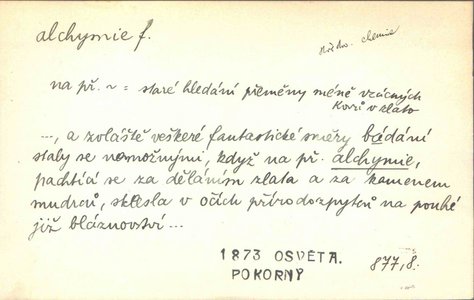 alchymie f.
středov. chemie
na př. ~ = staré hledání přeměny méně vzácných
kovů v zlato
..., a zvláště veškeré fantastické směry bádání
staly se nemožnými, když na př. alchymie,
pachtící se za děláním zlata a za kamenem
mudrců, sklesla v očích přírodozpytců na pouhé
již bláznovství ...
1873 OSVĚTA.
POKORNÝ
877,8.